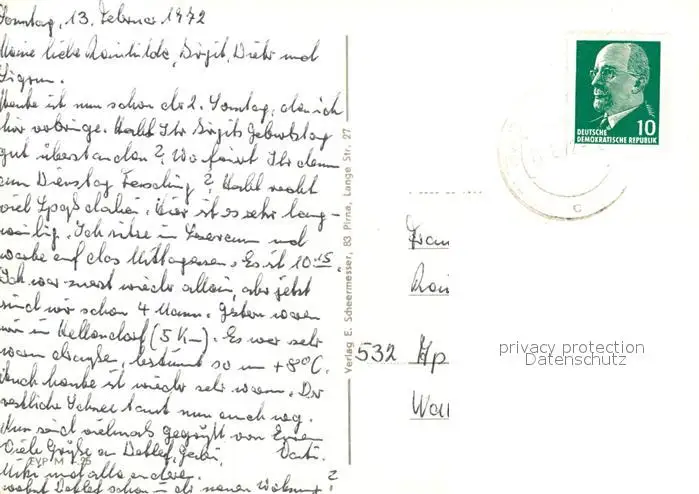 Sonntag, 13. Februar 1972
Meine liebe Rainhilde, Birgit, Dieter und
Sigrun.
Heute ist nun schon der 2. Sonntag, den ich
hier verbringe. Habt Ihr Birgits Geburtstag
gut überstanden? Wo feiert Ihr denn
am Dienstag Fasching? Habt recht
viel Spaß dabei. Hier ist es sehr lang-
weilig. Ich sitze im Leseraum und
warte auf das Mittagessen. Es ist 10 15.
Ich war zuerst wieder allein, aber jetzt
sind wir schon 4 Mann. Gestern waren
wir in Hellendorf (5 Km). Es war sehr
warm draußen, bestimmt so um +8°C.
Auch heute ist wieder sehr warm. Der
restliche Schnee taut nun auch weg.
Nun seid vielmals gegrüßt von Euren
Viele Grüße an Detlef, Vati.
und alle andere.
wohnt Detlef schon in der neuen Wohnung?
EVP M -.25
Verlag E. Scheermesser, 83 Pirna, Lange Str. 27
DEUTSCHE
DEMOKRATISCHE REPUBLIK
10
C
Frau
Rai
532 Ap
Wal
privacy protection
Datenschutz